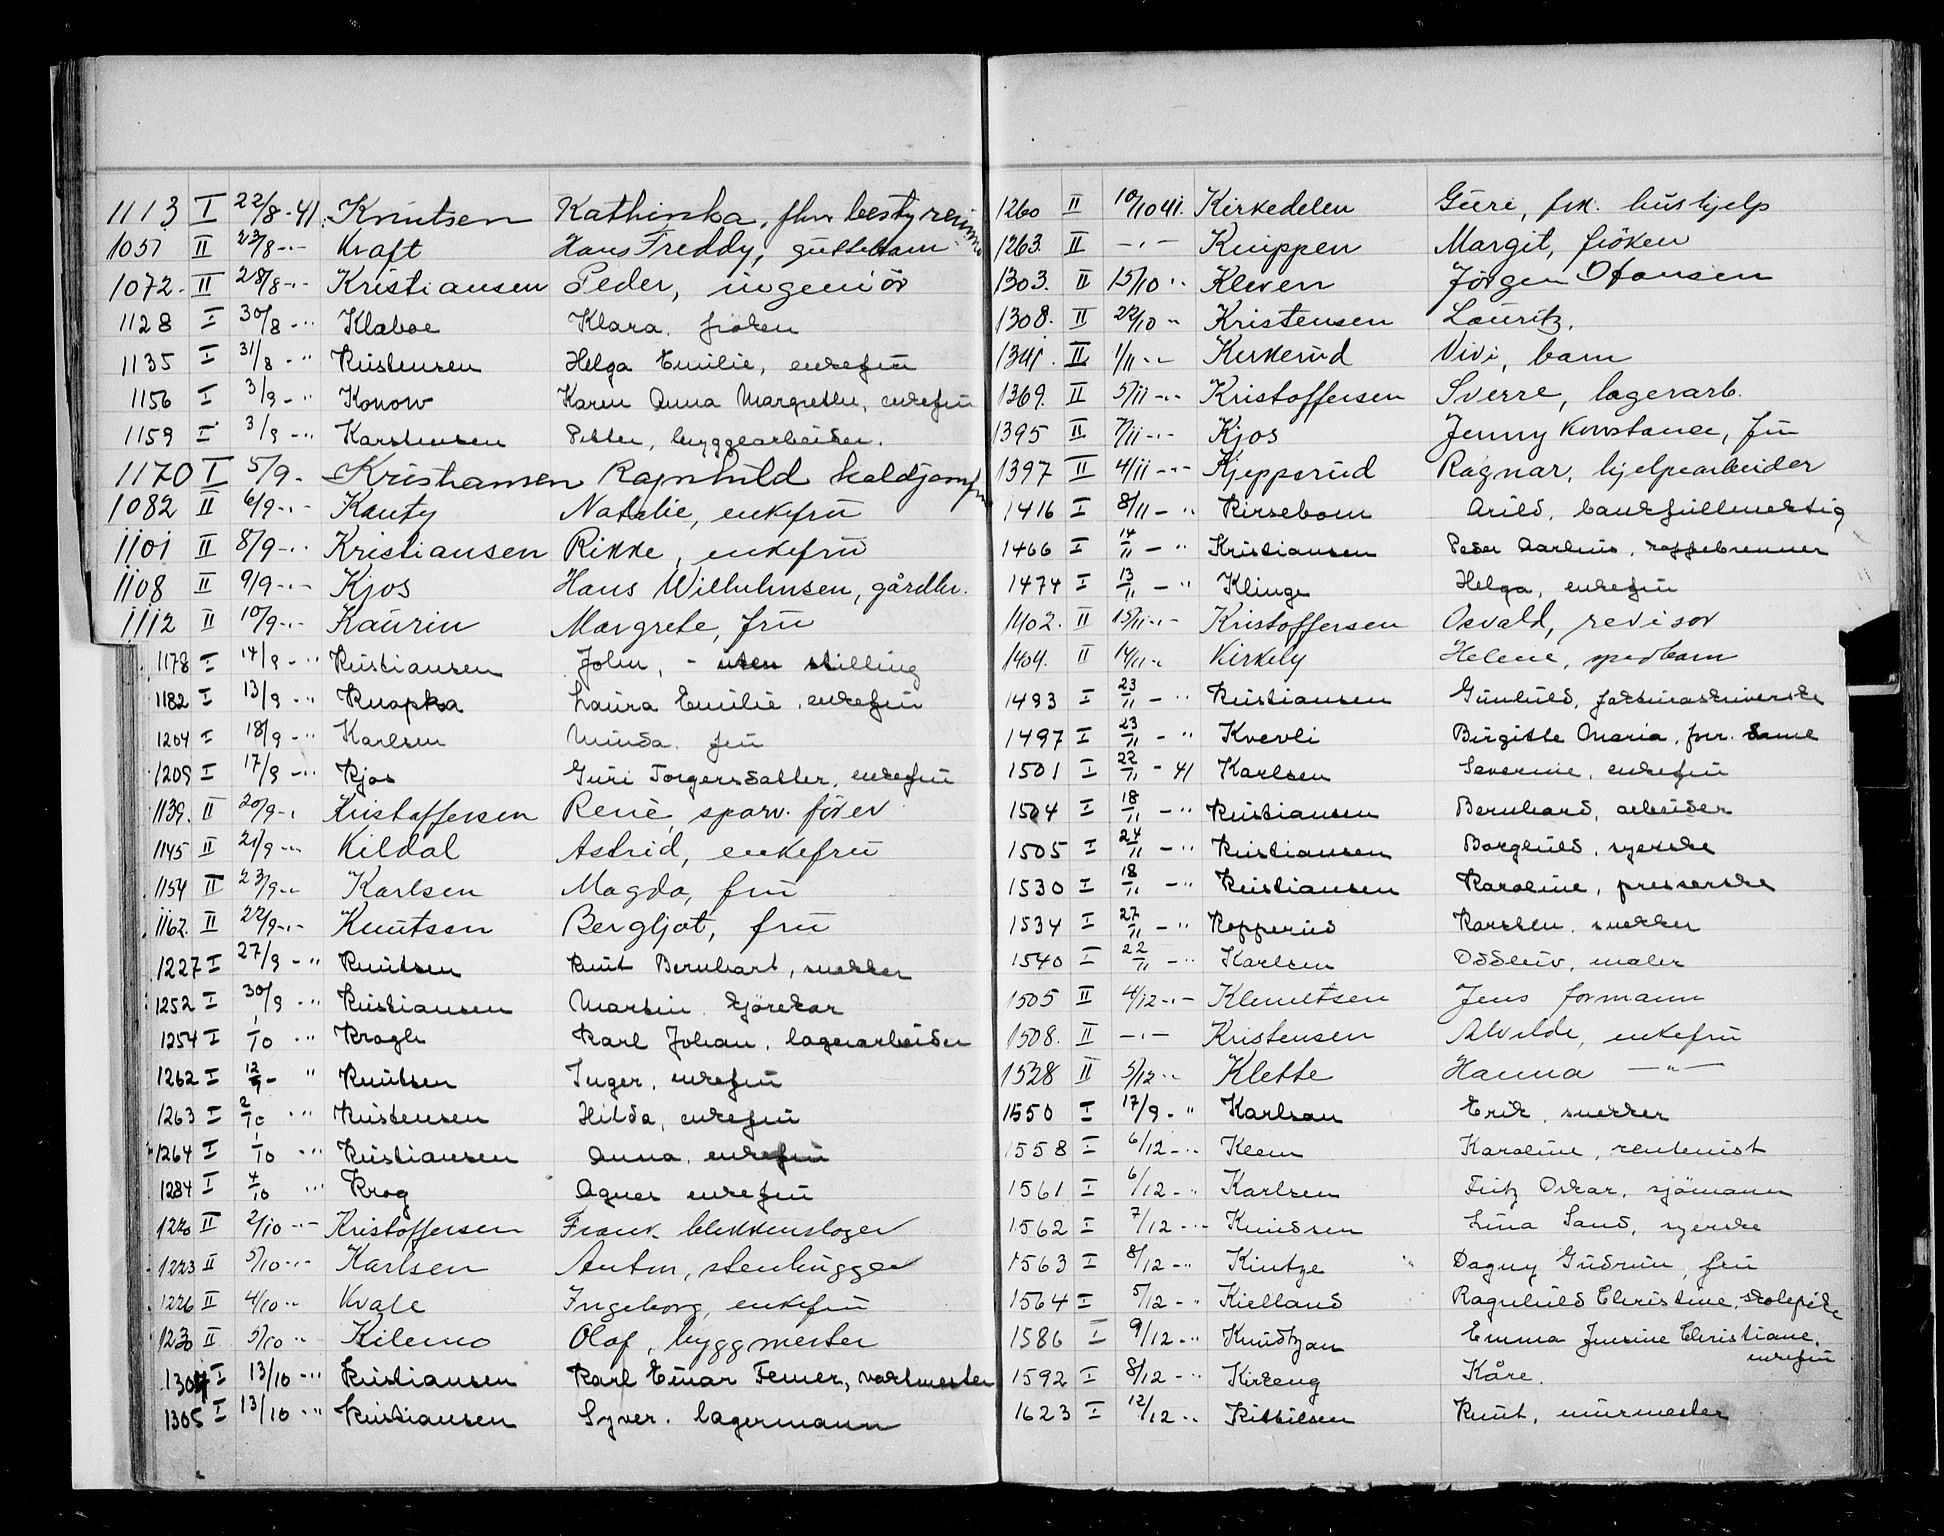 1113 I 22/8-41. Knutsen Kathinka, fhv. bestyrerinne
1057 II 23/8-"- Kraft Hans Freddy, guttebarn
1072. II 28/8-"- Kristiansen Peder, ingeniör
1128 I 30/8 -" Klaboe Klara. fröken
1135 I 31/8 -" Kristensen Helga Emilie, enkefru
1156 I 3/9 -" Konow Karen Anna Margrethe, enkefru
1159 I 3/9 -" Karstensen Petter, bryggearbeider.
1170 I 5/9- Kristiansen Ragnhild koldjomfru
1082 II 6/9-"- Kauty Natalie, enkefru
1101 II 8/9-"- Kristiansen Rikke, enkefru
1108 II 9/9-"- Kjos Hans Wilhelmsen, gårdbr.
1112 II 10/9-"- Kaurin Margrete, fru
1178 I 14/9 -" Kristiansen John, - uten stilling
1182 I 13/9 -" Knapka Laura Emilie, enkefru
1204 I 18/9 -" Karlsen Minda. fru
1209 I 17/9 -" Kjos Guri Torgersdatter, enkefru
1139. II 20/9-" Kristoffersen René, sporv. förer
1145 II 21/9 -"- Kildal Astrid, enkefru
1154 II 23/9-"- Karlsen Magda, fru
1162. II 22/9-"- Knutsen Bergljot, fru
1227 I 27/9 -" Knutsen Knut Bernhart, snekker
1252 I 30/9 -" Kristiansen Martin. kjörekar
1254 I 1/10 " Kragh Karl Johan, lagerarbeider
1262 I 12/9- " Knutsen Inger, enkefru
1263 I 2/10 " Kristensen Hilda, enkefru
1264 I 1/10 -" Kristiansen Anna, enkefru
1284 I 4/10 " Krog Agnes enkefru
1220 II 2/10 -"- Kristoffersen Frank blikkenslager
1223 II 5/10-"- Karlsen Anton, stenhugger
1226 II 4/10-" Kvale Ingeborg, enkefru
1230 II 5/10 " Kilemo Olaf, byggmester
1304 I 13/10 -" Kristiansen Karl Einar Femer, vaktmester
1305 I 13/10 " Kristiansen Syver. lagermann
1260 II 10/10 41. Kirkedelen Guri, frk. hushjelp
1263. II -"- Knippen Margit, fröken
1303. II 15/10 " Kleven Jörgen Hansen
1308. II 22/10 " Kristensen Lauritz.
1341. II 1/11-"- Kirkerud Vivi, barn
1369. II 5/11-"- Kristoffersen Sverre, lagerarb.
1395 II 7/11-"- Kjos Jenny Konstance, fru
1397 II 4/11-"- Kjeppsrud Ragnar, hjelpearbeider
1416 I 8/11 -" Kirsebom Arild, bankfullmektig
1466 I 14/11 -" Kristiansen Peder Aarhus, kaffebrenner
1474 I 13/11 -" Klinge Helga, enkefru
1402. II 15/11-"- Kristoffersen Osvald, revisor
1404. II 14/11-" Kirkely Helene, spedbarn
1493 I 23/11 -" Kristiansen Gunhild, fakturaskriverske
1497 I 23/11 -" Kvevli Birgitte Maria, forr. dame
1501 I 22/11 - 41 Karlsen Severine, enkefru
1504 I 18/11 -" Kristiansen Bernhard, arbeider
1505 I 24/11 -" Kristiansen Borghild, syerske
1530 I 18/11 -" Kristiansen Karoline, presserske
1534 I 27/11 -" Kopperud Karsten, snekker
1540 I 22/11 -" Karlsen Oddleiv, maler
1505 II 4/12-"- Klemetsen Jens formann
1508. II -"- Kristensen Alvilde, enkefru
1528 II 5/12-" Klette Hanna -"-
1550 I 17/9-" Karlsen Erik, snekker
1558 I 6/12-" Klem Karoline, rentenist
1561 I 6/12-" Karlsen Fritz Oskar, sjömann
1562 I 7/12-" Knudsen Lina Sand, syerske
1563 I 8/12-" Kintze " Dagny Gudrun, fru
1564 I 5/12-" Kielland Ragnhild Christine, skolepike
1586 I 9/12-" Knudtzon Emma Jensine Christiane,
enkefru
1592 I 8/12-" Kirkeng Kåre.
1623 I 12/12 " Kittilsen Knut, murmester